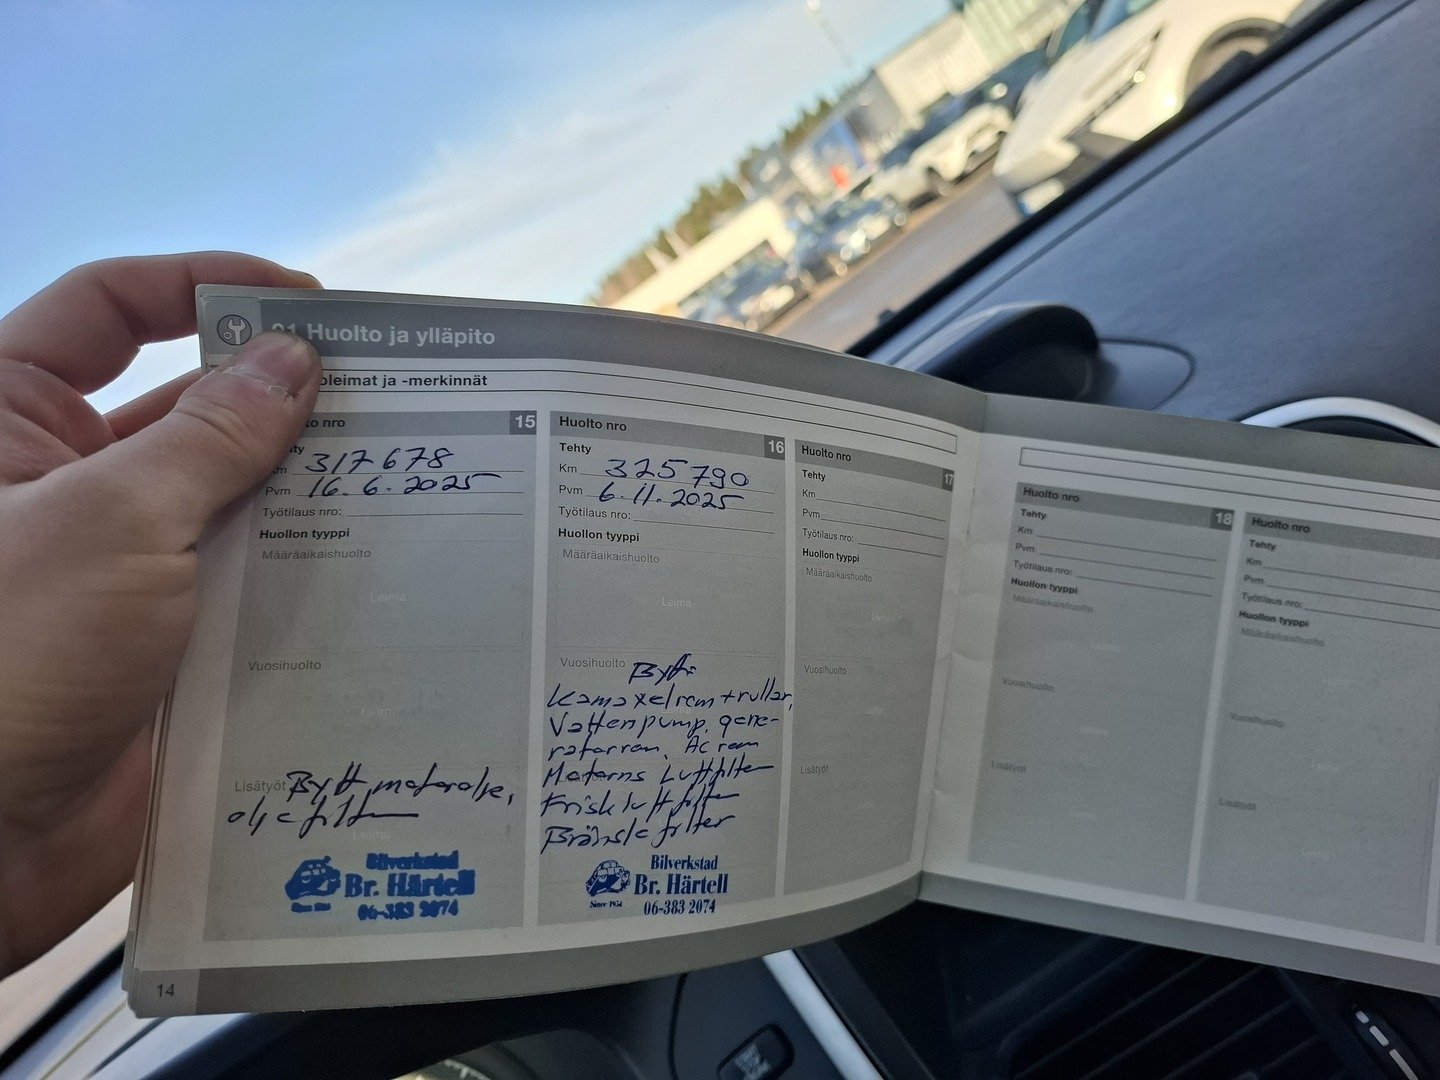 01 Huolto ja ylläpito
oleimat ja -merkinnät
to nro 15
ty
Km 317678
Pvm 16.6.2025
Työtilaus nro:
Huollon tyyppi
Määräaikaishuolto
Leima
Vuosihuolto
Leima
Lisätyöt Bytt motorolje,
oljefilter
Leima
Bilverkstad
Br. Härtell
06-383 2074
Huolto nro 16
Tehty
Km 325790
Pvm 6.11.2025
Työtilaus nro:
Huollon tyyppi
Määräaikaishuolto
Leima
Vuosihuolto Bytt:
Kamaxelrem + rullar,
Vattenpump, gene-
ratorrem, Ac rem
Motorns Luftfilter
Friskluftfilter
Bränslefilter
Bilverkstad
Br. Härtell
Since 1954
06-383 2074
Huolto nro 17
Tehty
Km
Pvm
Työtilaus nro:
Huollon tyyppi
Määräaikaishuolto
Vuosihuolto
Lisätyöt
14
Huolto nro 18
Tehty
Km
Pvm
Työtilaus nro:
Huollon tyyppi
Määräaikaishuolto
Vuosihuolto
Lisätyöt
Huolto nro
Tehty
Km
Pvm
Työtilaus nro:
Huollon tyyppi
Määräaikaishuolto
Vuosihuolto
Lisätyöt